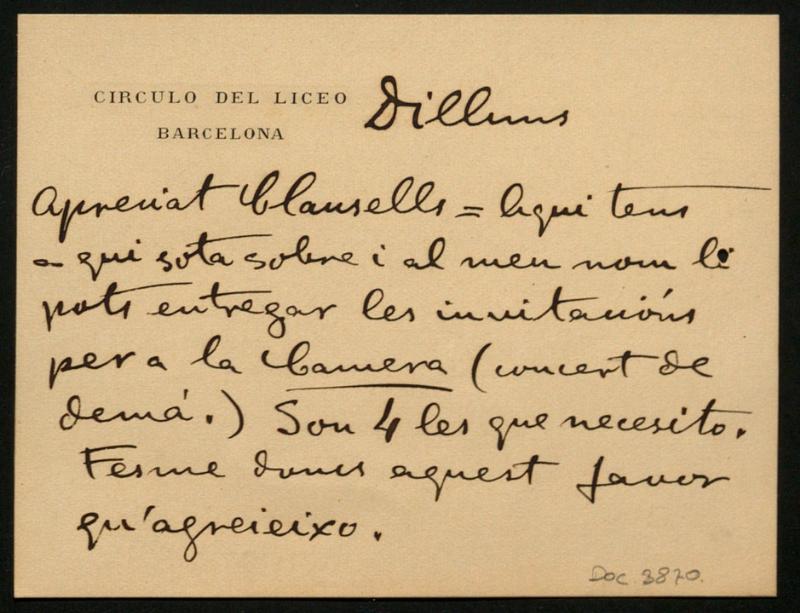 CIRCULO DEL LICEO
BARCELONA
Dilluns
Apreciat Clausells = Aqui tens
a qui sota sobre i al meu nom li
pots entregar les invitacións
per a la Camera (concert de
demá.) Son 4 les que necesito.
Fesme doncs aquest favor
qu'agreieixo.
Doc 3870.